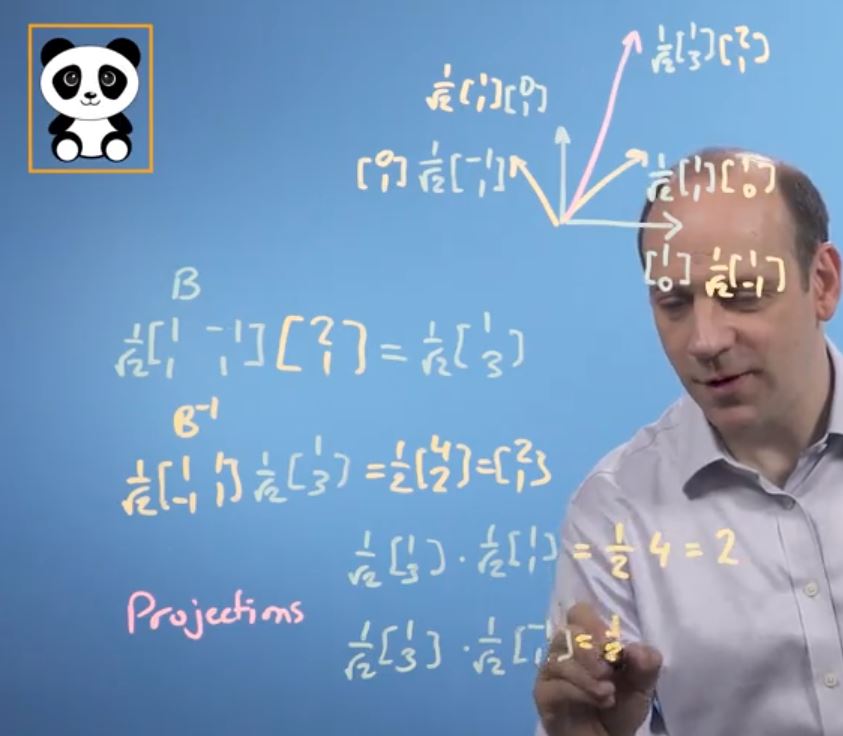 1/√2 [1 3] [2 1]
1/√2 [1 1] [0 1]
[0 1] 1/√2 [-1 1]
1/√2 [1 1] [1 0]
[1 0] 1/√2 [1 -1]
B
1/√2 [1 -1 1 1] [2 1] = 1/√2 [1 3]
B⁻¹
1/√2 [1 1 -1 1] 1/√2 [1 3] = 1/2 [4 2] = [2 1]
1/√2 [1 3] · 1/√2 [1 1] = 1/2 4 = 2
Projections
1/√2 [1 3] · 1/√2 [-1 1] = 1/2